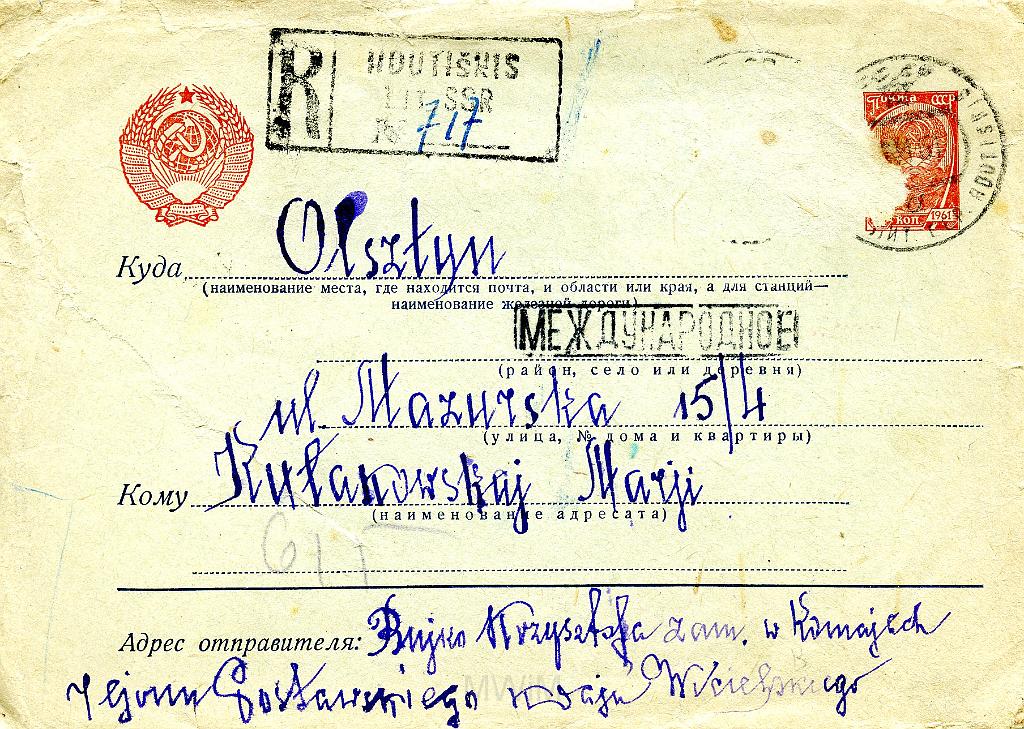 R HODUTIŠKIS
LIT. SSR
№ 717
Почта СССР
КОП. 1961
Куда Olsztyn
(наименование места, где находится почта, и области или края, а для станций—
наименование железной дороги)
МЕЖДУНАРОДНОЕ
(район, село или деревня)
ul. Mazurska 15/4
(улица, № дома и квартиры)
Кому Kułakowskaj Marji
(наименование адресата)
Адрес отправителя: Bujko Krzysztofa zam. w Komajach
rejonu Postawskiego
MWiM